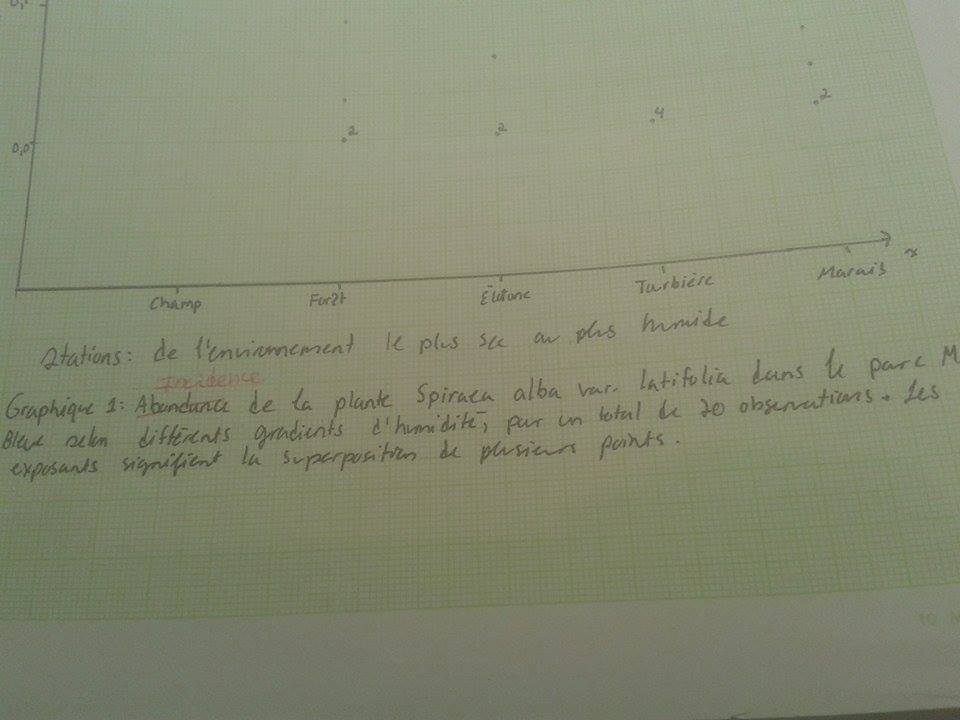 0,0
2
2
4
2
Champ Forêt Élitane Turbière Marais x
Stations: de l'environnement le plus sec au plus humide
Incidence
Graphique 1: Abondance de la plante Spiraea alba var. latifolia dans le parc M
Bleue selon différents gradients d'humidité, par un total de 20 observations. Les
exposants signifient la superposition de plusieurs points.